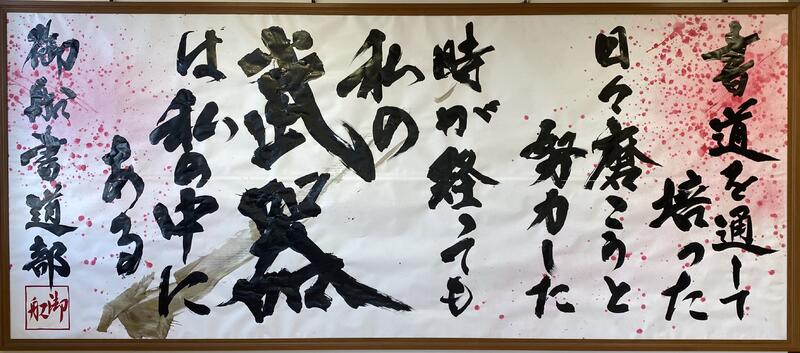 書道を通して
培った
日々磨こうと
努力した
時が経っても
私の
武器
は私の中に
ある
御船書道部
御船